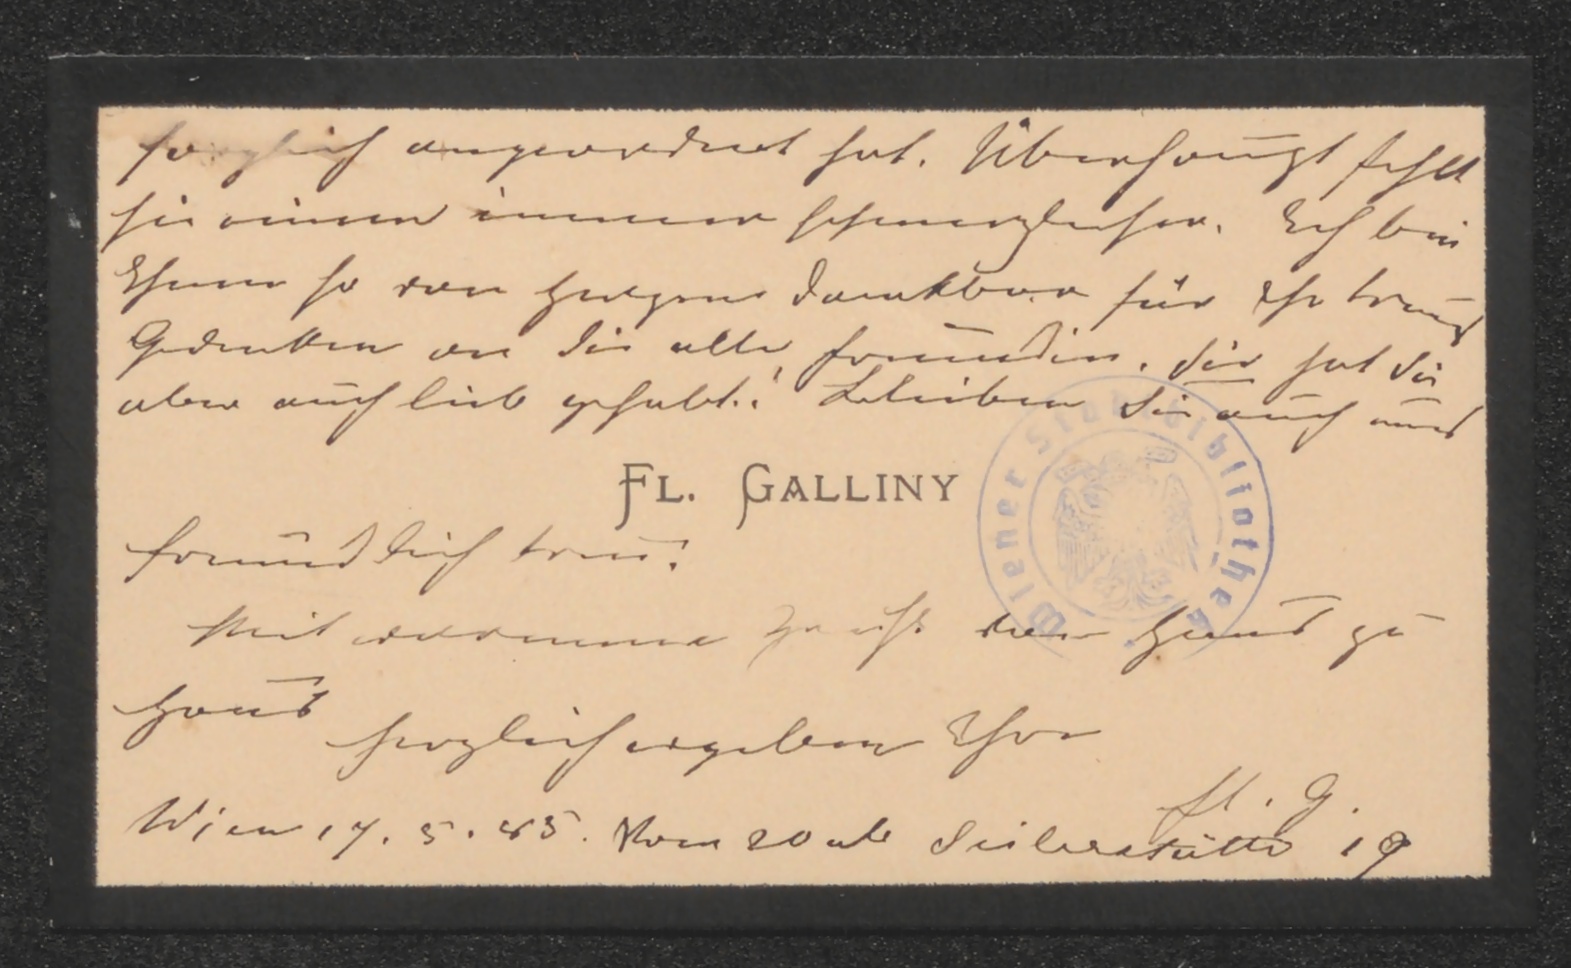 sorglich angeordnet hat. Überhaupt fehlt
sie einem immer schmerzlicher. Ich bin
Ihnen so von Herzen dankbar für Ihr treues
Gedenken an die alte Freundin, die hat Sie
aber auch lieb gehabt! Bleiben Sie auch uns
FL. GALLINY
freundlich treu!
Mit warmem von Haus zu
Haus
herzlich ergeben Ihre
Fl. G.
Wien 17. 5. 85. Vom 20 ab Seilerstätte 19
Wiener Stadtbibliothek